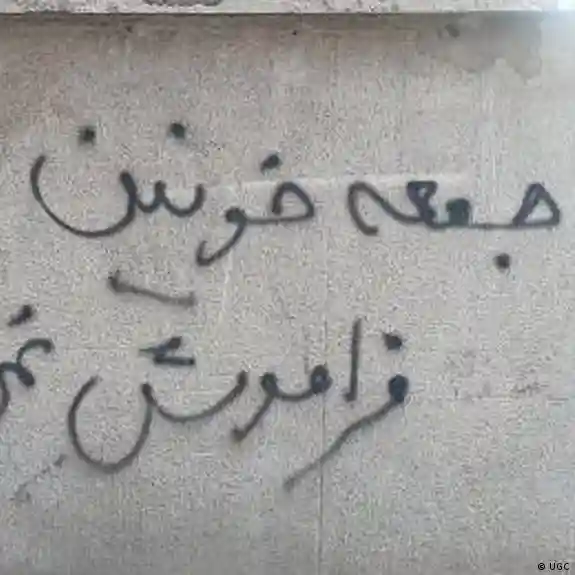 جمعه خونین
فراموش نمی
© UGC